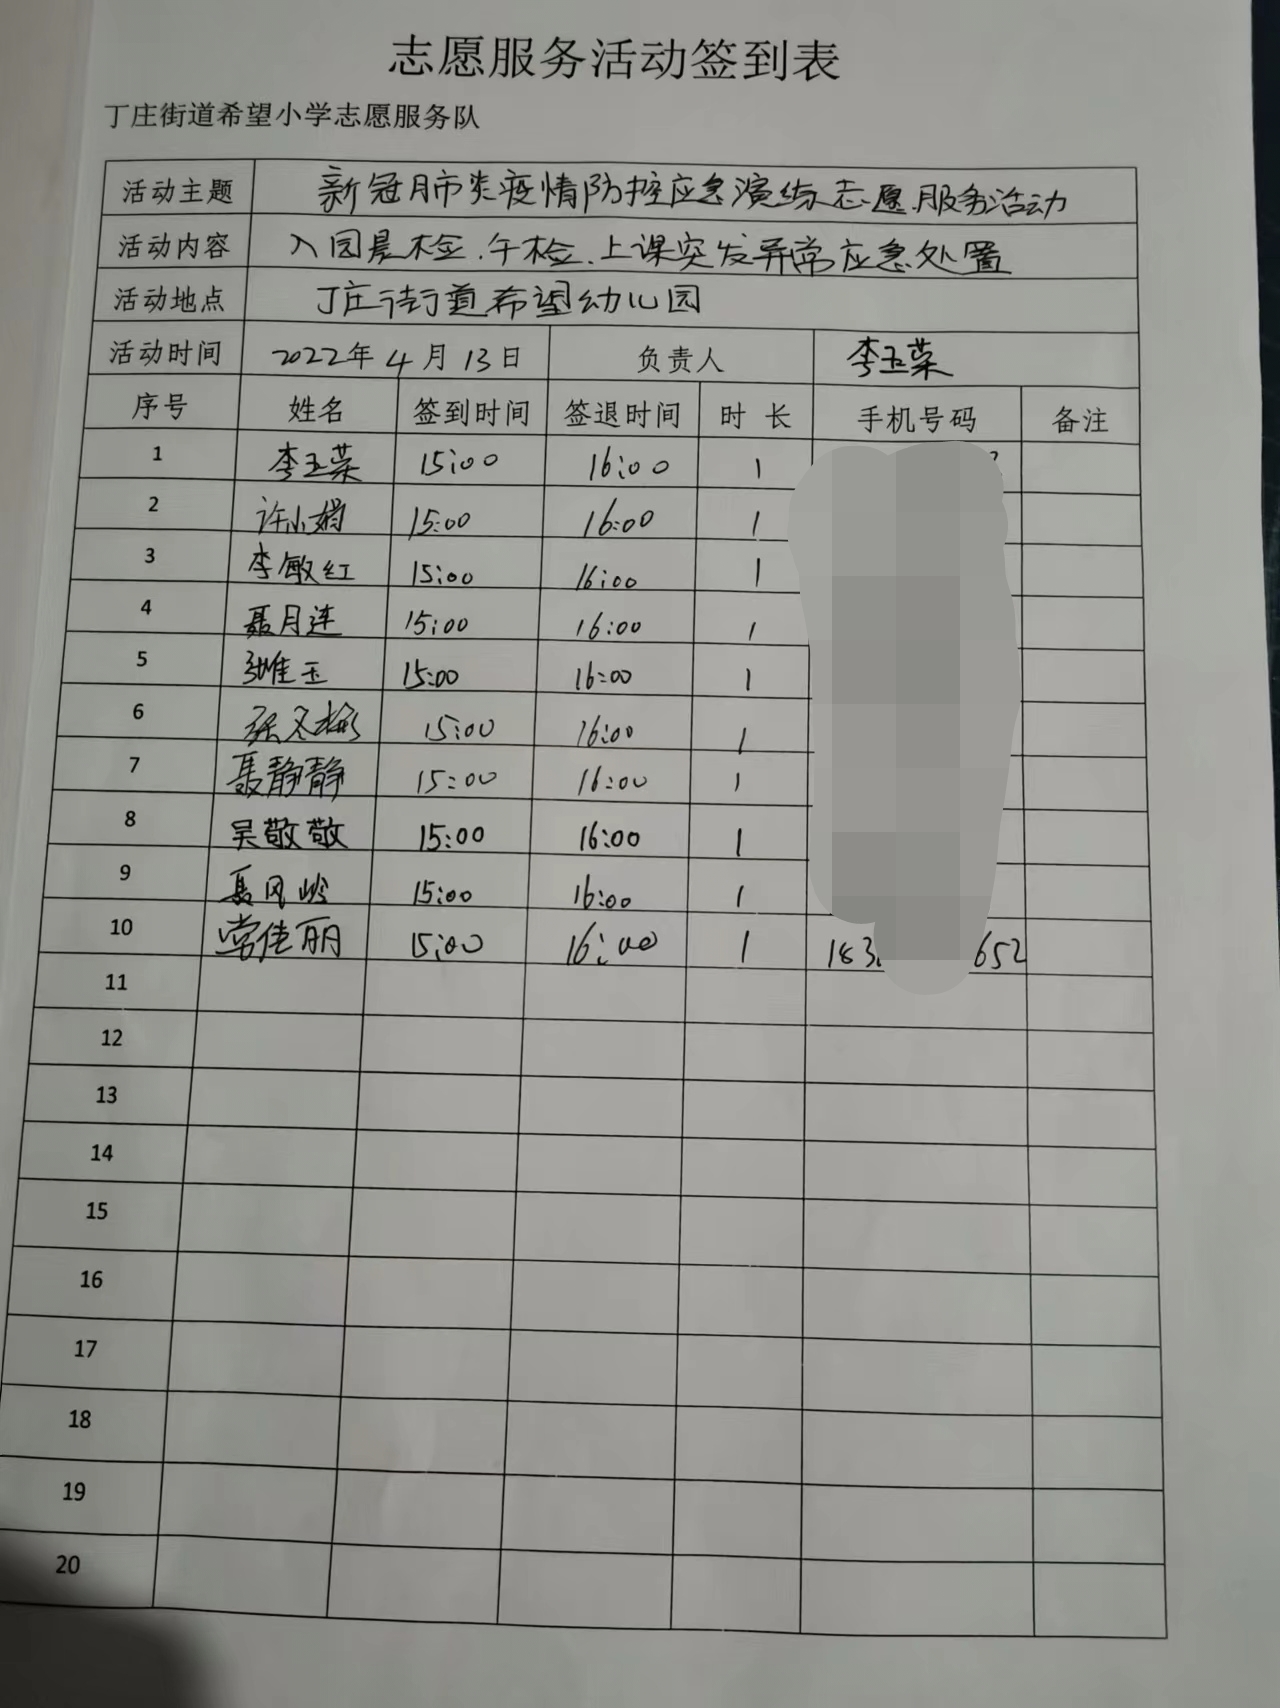 志愿服务活动签到表
丁庄街道希望小学志愿服务队
活动主题 新冠肺炎疫情防控应急演练志愿服务活动
活动内容 入园晨检、午检、上课突发异常应急处置
活动地点 丁庄街道希望幼儿园
活动时间 2022年4月13日 负责人 李玉荣
序号 姓名 签到时间 签退时间 时长 手机号码 备注
1 李玉荣 15:00 16:00 1
2 许小娟 15:00 16:00 1
3 李敏红 15:00 16:00 1
4 聂月连 15:00 16:00 1
5 张维玉 15:00 16:00 1
6 张冬梅 15:00 16:00 1
7 聂静静 15:00 16:00 1
8 吴敬敬 15:00 16:00 1
9 聂风岭 15:00 16:00 1
10 常佳丽 15:00 16:00 1 183 652
11
12
13
14
15
16
17
18
19
20